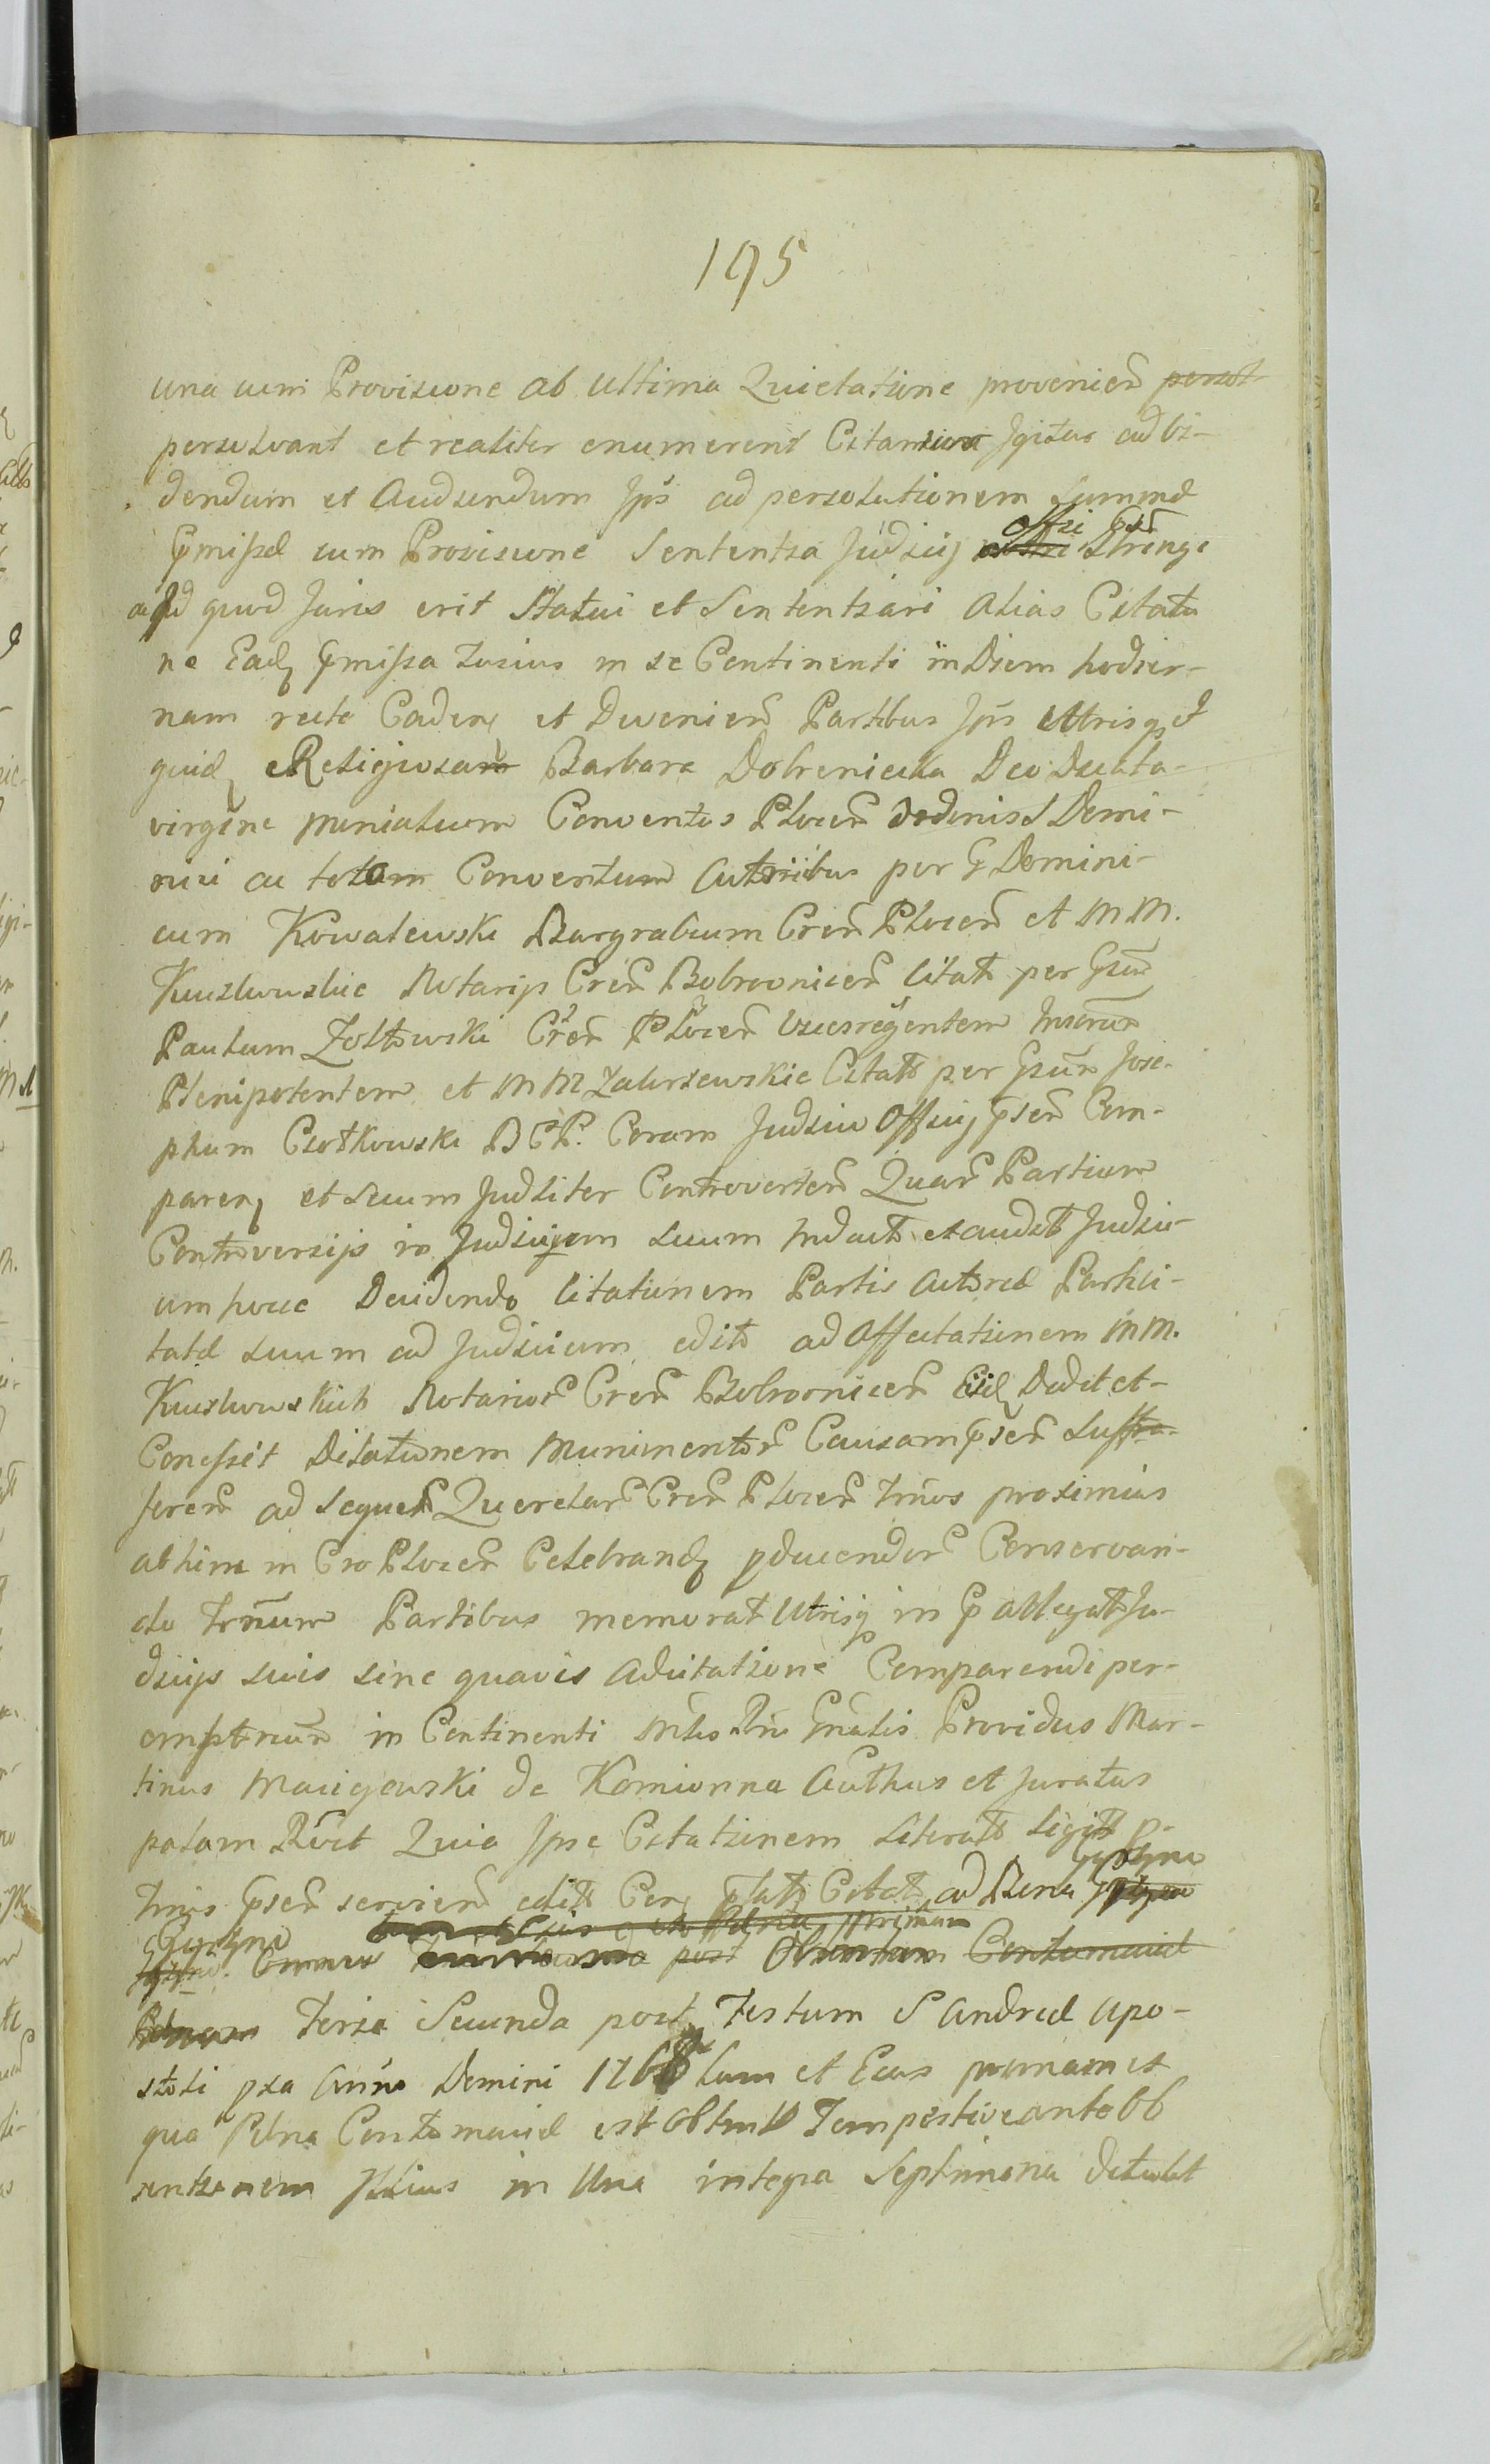 195
una cum Provisione ab ultima Quietatione provenien̄ persol
persolvant et realiter enumerent Citamini Igitur ad vi-
dendum et Audiendum Ips̄ ad persolutionem Summæ
p̄missæ cum Provisione Sententia Judicij Offii p̄sen̄ Stringi
aliud quod Juris erit Statui et Sententiari alias Citatio-
ne Eadq̨ p̄missa Latius in se Continenti in Diem hodier-
nam recte Caden̨ et Devenien̄ Partibus Ip̄is Utrisqȝ et
quidq̨ Religiosam Barbara Dobrenicka Deo Dicata
virgine monialium Conventus Plocen̄ Ordinis S Domi-
nici ac totam Conventum Actoribus per G Domini-
cum Kowalewski Burgrabium Cren̄ Plocen̄ et MM.
Kuczkowskie Notarijs Cren̄ Bobrownicen̄ Citat̄ per Gsum̄
Paulum Zołtowski Cren̄ Plocen̄ Vicesregentem
Plenipotentem et MM Zakrzewskie Citat̄ per Gsum̄ Jose-
phum Ciołkowski B C P. Coram Judicio Officij p̄sen̄ Com-
paren̨ et Secum Judliter Controverten̄ Quar̄ Partium
Controversijs in Judicijum suum Induct̄ et audit̄ Judici-
um hocce Decidendo Citationem Partis Actoreæ Partici-
tatæ suum ad Judicium edit̄ ad Affectationem MM.
Kuczkowskich Notarior̄ Cren̄ Bobrownicen̄ Eisdq̨ Dedit et
Concessit Dilationem Munimentor̄ Causam p̄sen̄ Suffra-
feren̄ ad Sequen̄ Querelar̄ Cren̄ Plocen̄ Trn̄os proximius
ab hinc in Cro Plocen̄ Celebrandq̨ pducendor̄ Conservan-
do Trn̄um Partibus memorat Utrisqȝ in p̄ allegat̄ Ju-
dicijs suis sine quavis Adcitatione Comparendi per-
emptrium̄ in Continenti Mtis Rn̄ Gn̄alis Providus Mar-
tinus Maciejewski de Komionna Authus et Juratus
palam Rc̄vit Quia Ipse Citationem Literat̄ Legit̄ p-
Trnis p̄sen̄ servien̄ edit̄ p̄lat̄ Citat̄ ad Bona
post Obtentam Contumaciæ
Feria Secunda post Festum S Andreæ Apo-
stoli pxa Anno Domini 1768 tum et Eius primam et
qua Pœna Contumaciæ est obtent̄ Tempestive ante ob
tentionem Illius in Una integra Septimana detulit